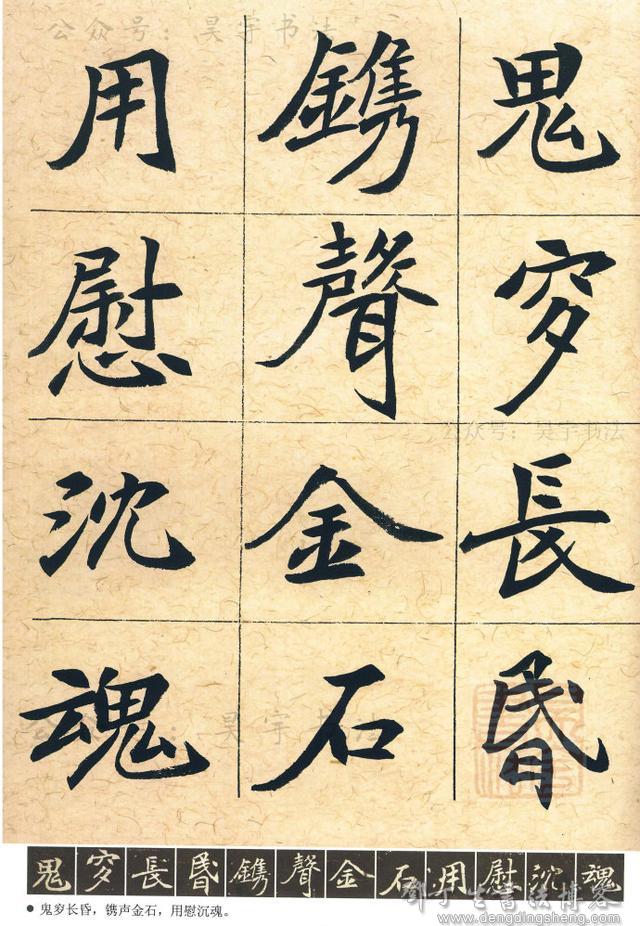 公众号：昊宇书法
鬼穸長昬
鐫聲金石
用慰沈魂
公众号：昊宇书法
公众号：昊宇书法
鬼穸長昬鐫聲金石用慰沈魂
● 鬼穸长昏，镌声金石，用慰沉魂。
邓丁生書法博客
www.dengdingsheng.com